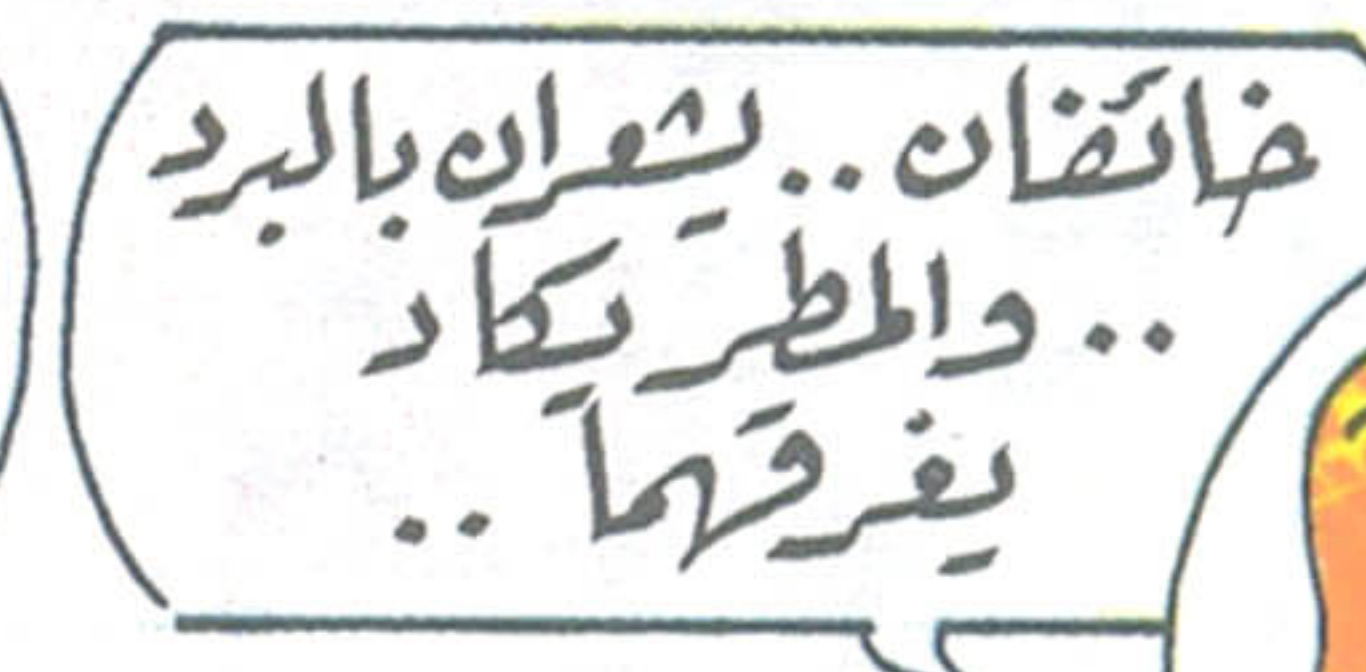 خائفان .. يشعران بالبرد
.. والمطر يكاد
يغرقهما ..